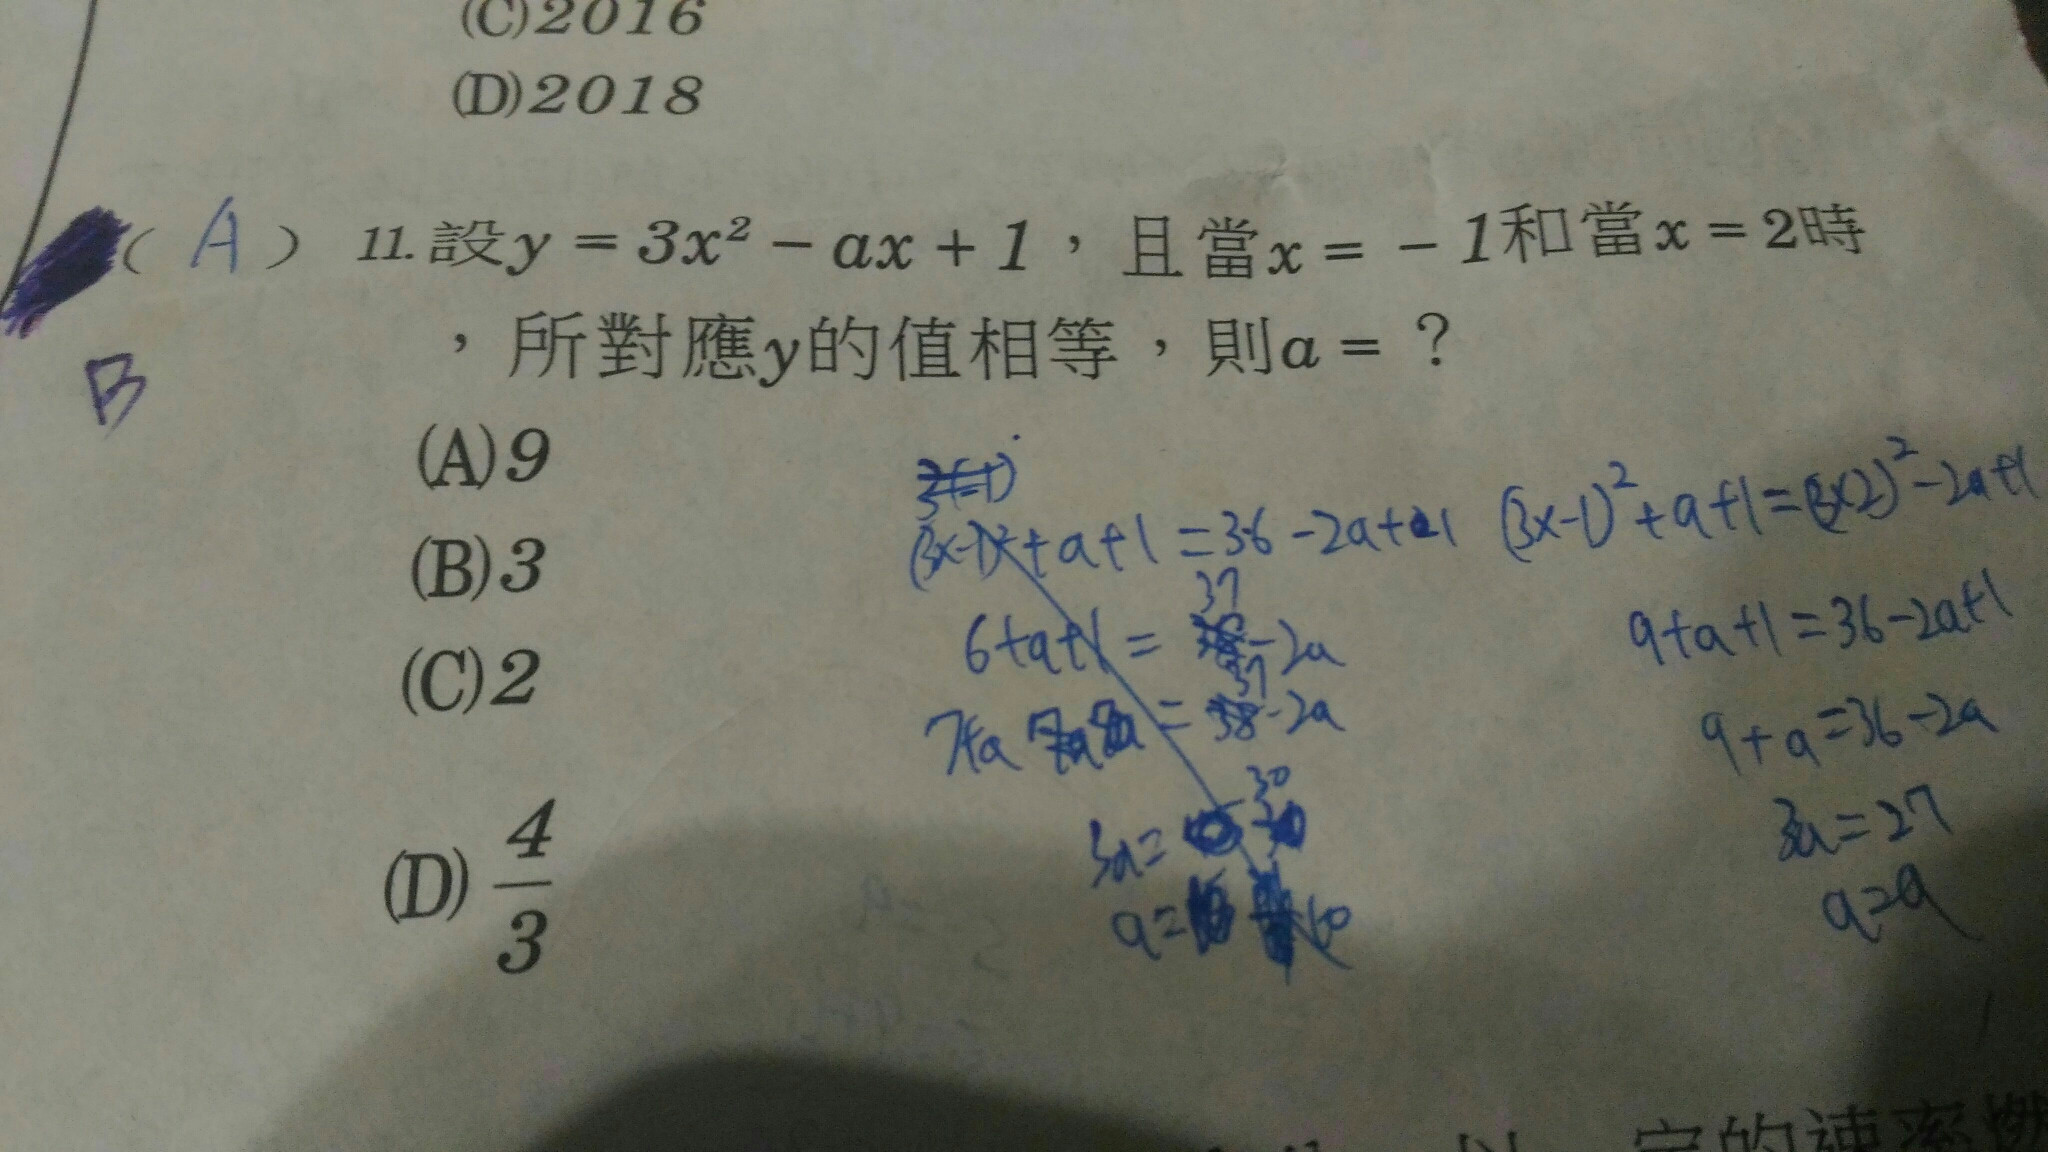 (C)2016
(D)2018
( A ) 11.設y = 3x² − ax + 1，且當x = − 1和當x = 2時
，所對應y的值相等，則a = ？
B
(A)9
(B)3
(C)2
(D)4/3
(3x-1)²+a+1=36-2a+1
6+a+1=37-2a
7+a=37-2a
3a=30
a=10
(3x-1)²+a+1=(3x2)²-2a+1
9+a+1=36-2a+1
9+a=36-2a
3a=27
a=9
定的速率燃